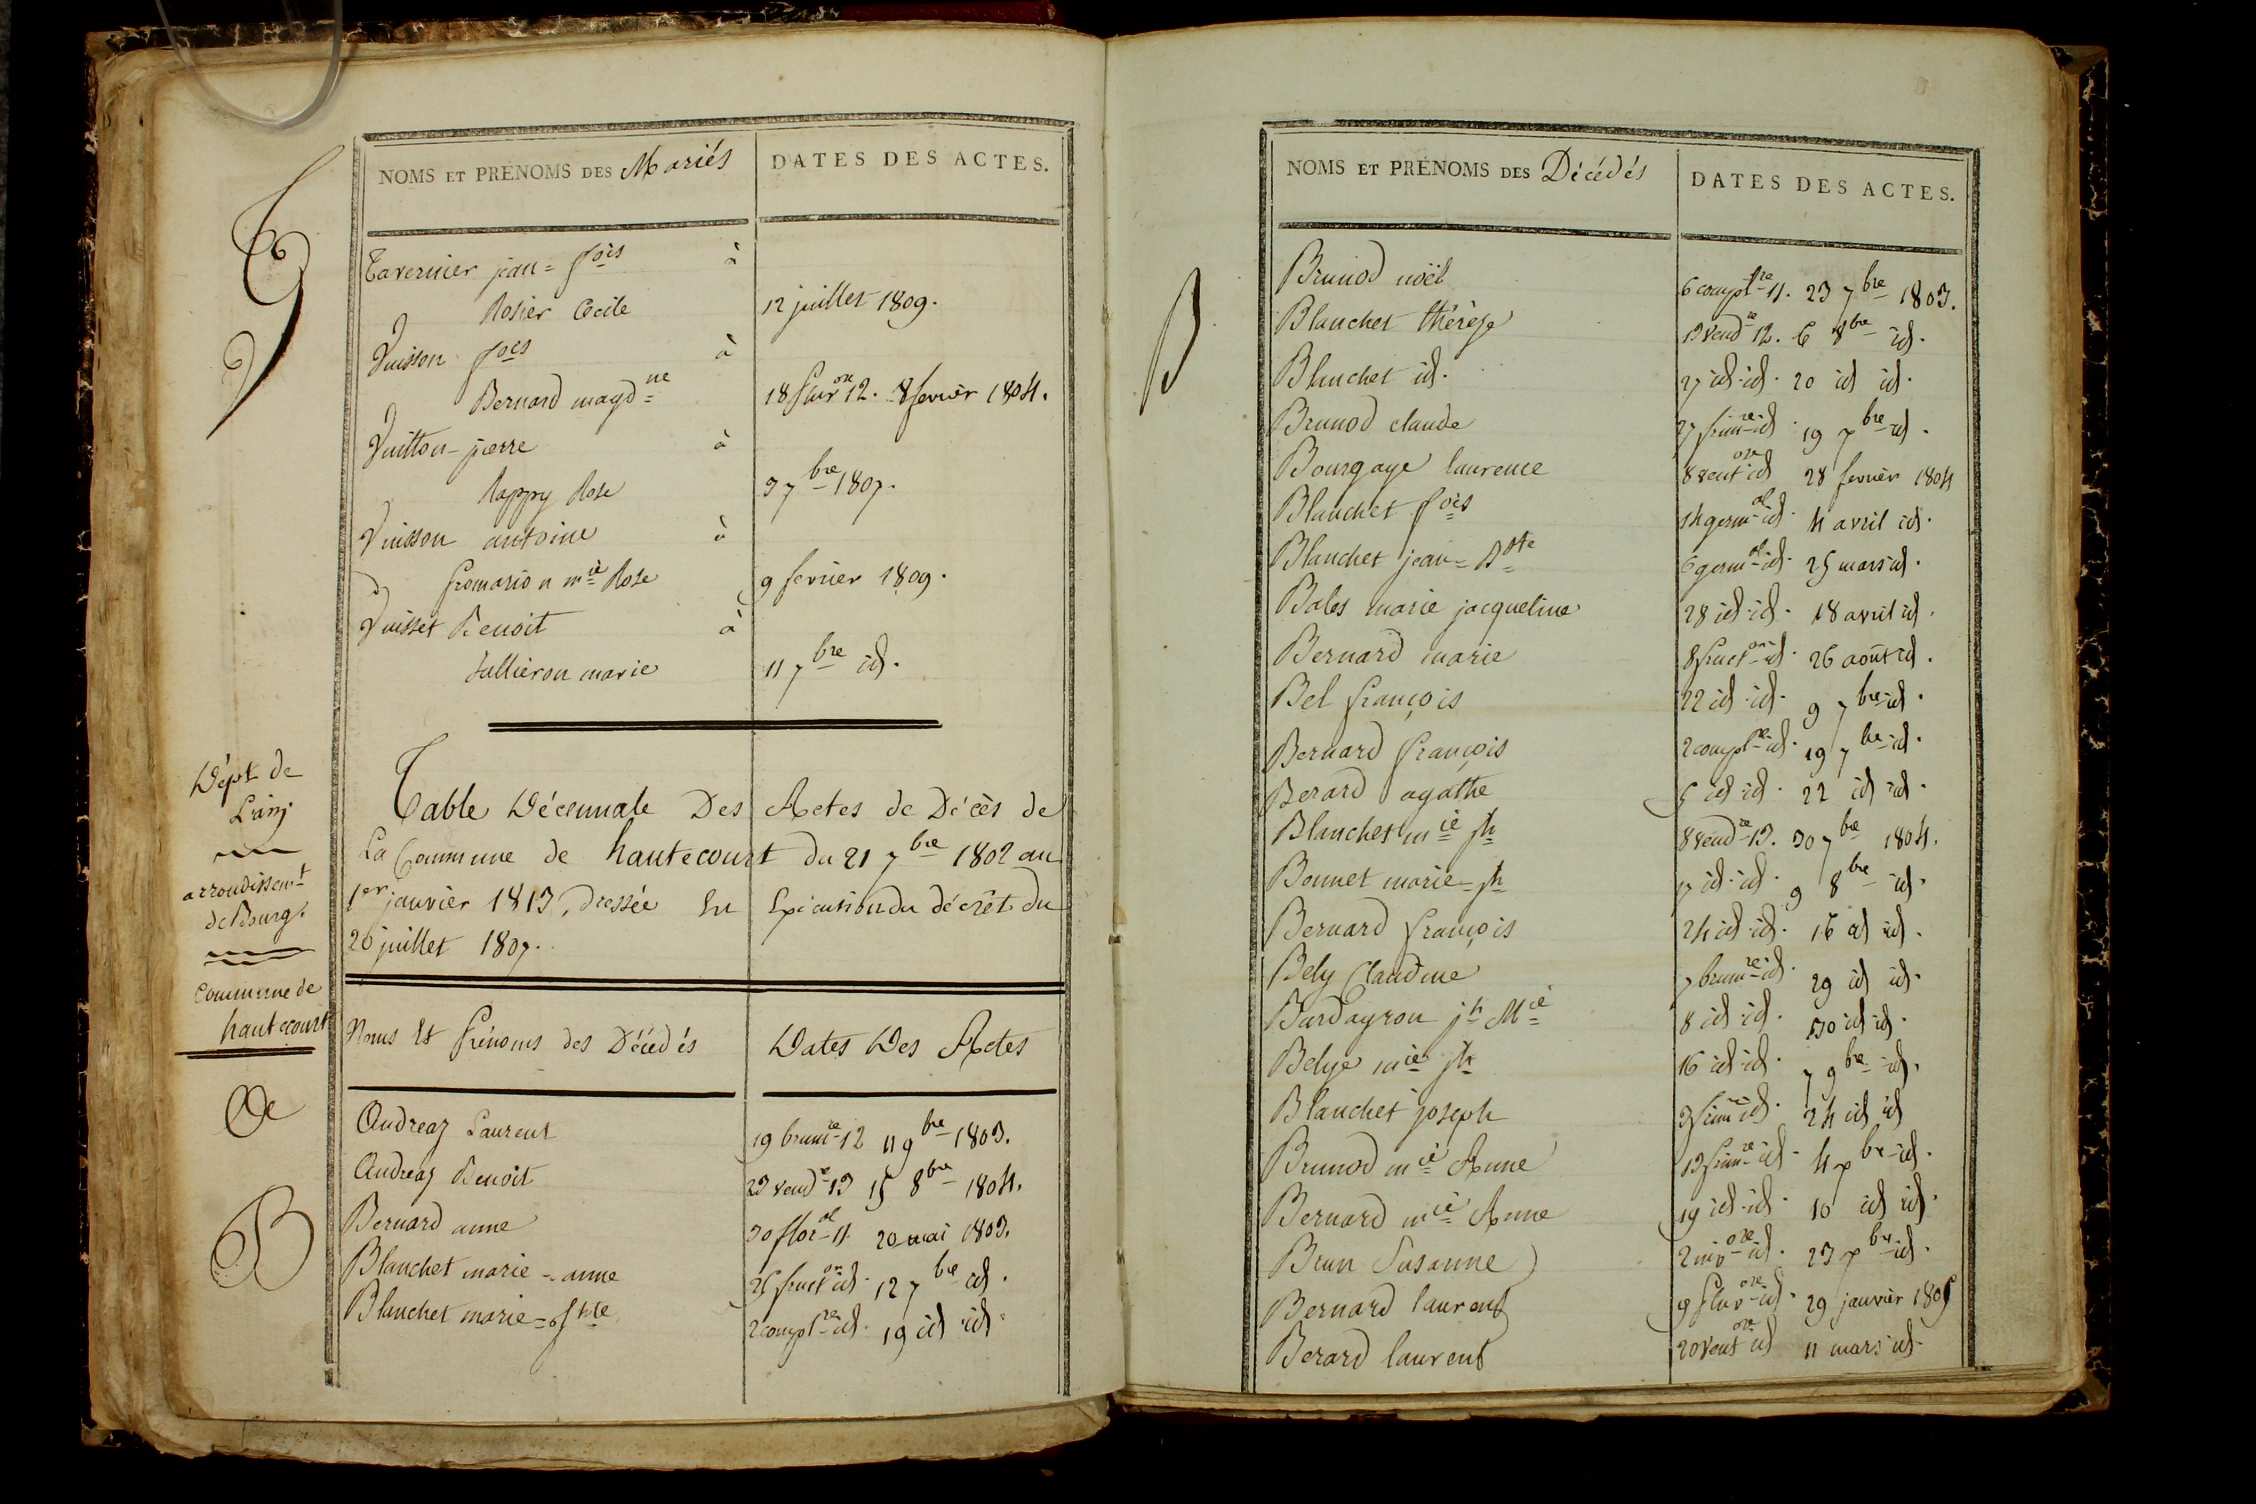 NOMS ET PRÉNOMS DES Mariés DATES DES ACTES.
T
Tavernier jean=fois à
Rosier Cecile 12 juillet 1809.
V
Vuisson fois à
Bernard magdne 18 pluv 12. 8 fevrier 1804.
Vuitton pierre à
Rappy Rose 3 7bre 1807.
Vuisson antoine à
fromarion mie Rose 9 fevrier 1809.
Vuisset Benoit à
Jullieron marie 11 7bre id.
Dépt de
L'ain
arrondissemt
de Bourg.
Commune de
hautecourt
Table Décennale Des Actes de Décès de
La Commune de hautecourt du 21 7bre 1802 au
1er janvier 1813, dressée En Execution du décrêt du
20 juillet 1807.
Noms Et Prénoms des Décédés Dates Des Actes
A
Andreaz Laurent 19 brumre 12 11 9bre 1803.
Andreaz Benoit 23 vendre 13 15 8bre 1804.
B
Bernard anne 30 floral 11 20 mai 1803.
Blanchet marie=anne 25 fructor id. 12 7bre id.
Blanchet marie= 2 complre id. 19 id id.
NOMS ET PRÉNOMS DES Décédés DATES DES ACTES.
B
Brunod noël 6 complre 11. 23 7bre 1803.
Blanchet thérèse 13 vendre 12. 6 8bre id.
Blanchet id. 27 id. id. 20 id id.
Brunod claude 27 frimre id. 19 Xbre id.
Bourgaye laurence 8 ventose id 28 fevrier 1804
Blanchet fois 14 germal id. 4 avril id.
Blanchet jean=Bte 6 germal id. 25 mars id.
Bales marie jacqueline 28 id. id. 18 avril id.
Bernard marie 8 fructor id. 26 août id.
Bel françois 22 id. id. 9 7bre id.
Bernard françois 2 complre id. 19 7bre id.
Berard agathe 5 id. id. 22 id id.
Blanchet mie jh 8 vendre 13. 30 7bre 1804.
Bonnet marie jh 17 id. id. 9 8bre id.
Bernard françois 24 id. id. 16 id id.
Bely Claudine 7 brumre id. 29 id id.
Bardayron jh Mie 8 id. id. 30 id id.
Belye mie jh 16 id. id. 7 9bre id.
Blanchet joseph 3 frimre id. 24 id id
Brunod mie Anne 13 frimre id. 4 Xbre id.
Bernard mie Anne 19 id. id. 10 id id.
Brun Susanne 2 nivose id. 23 Xbre id.
Bernard laurent 9 pluvose id. 29 janvier 1805
Berard laurent 20 ventose id 11 mars id.